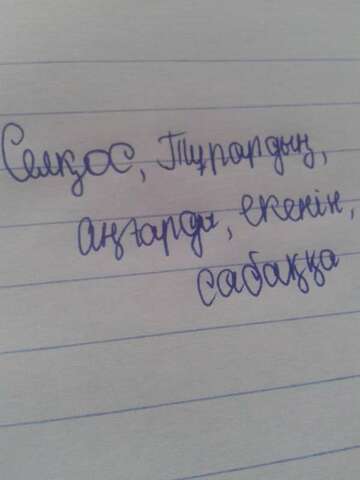 Селқос, Тұрардың,
аңғарды, екенін,
сабаққа